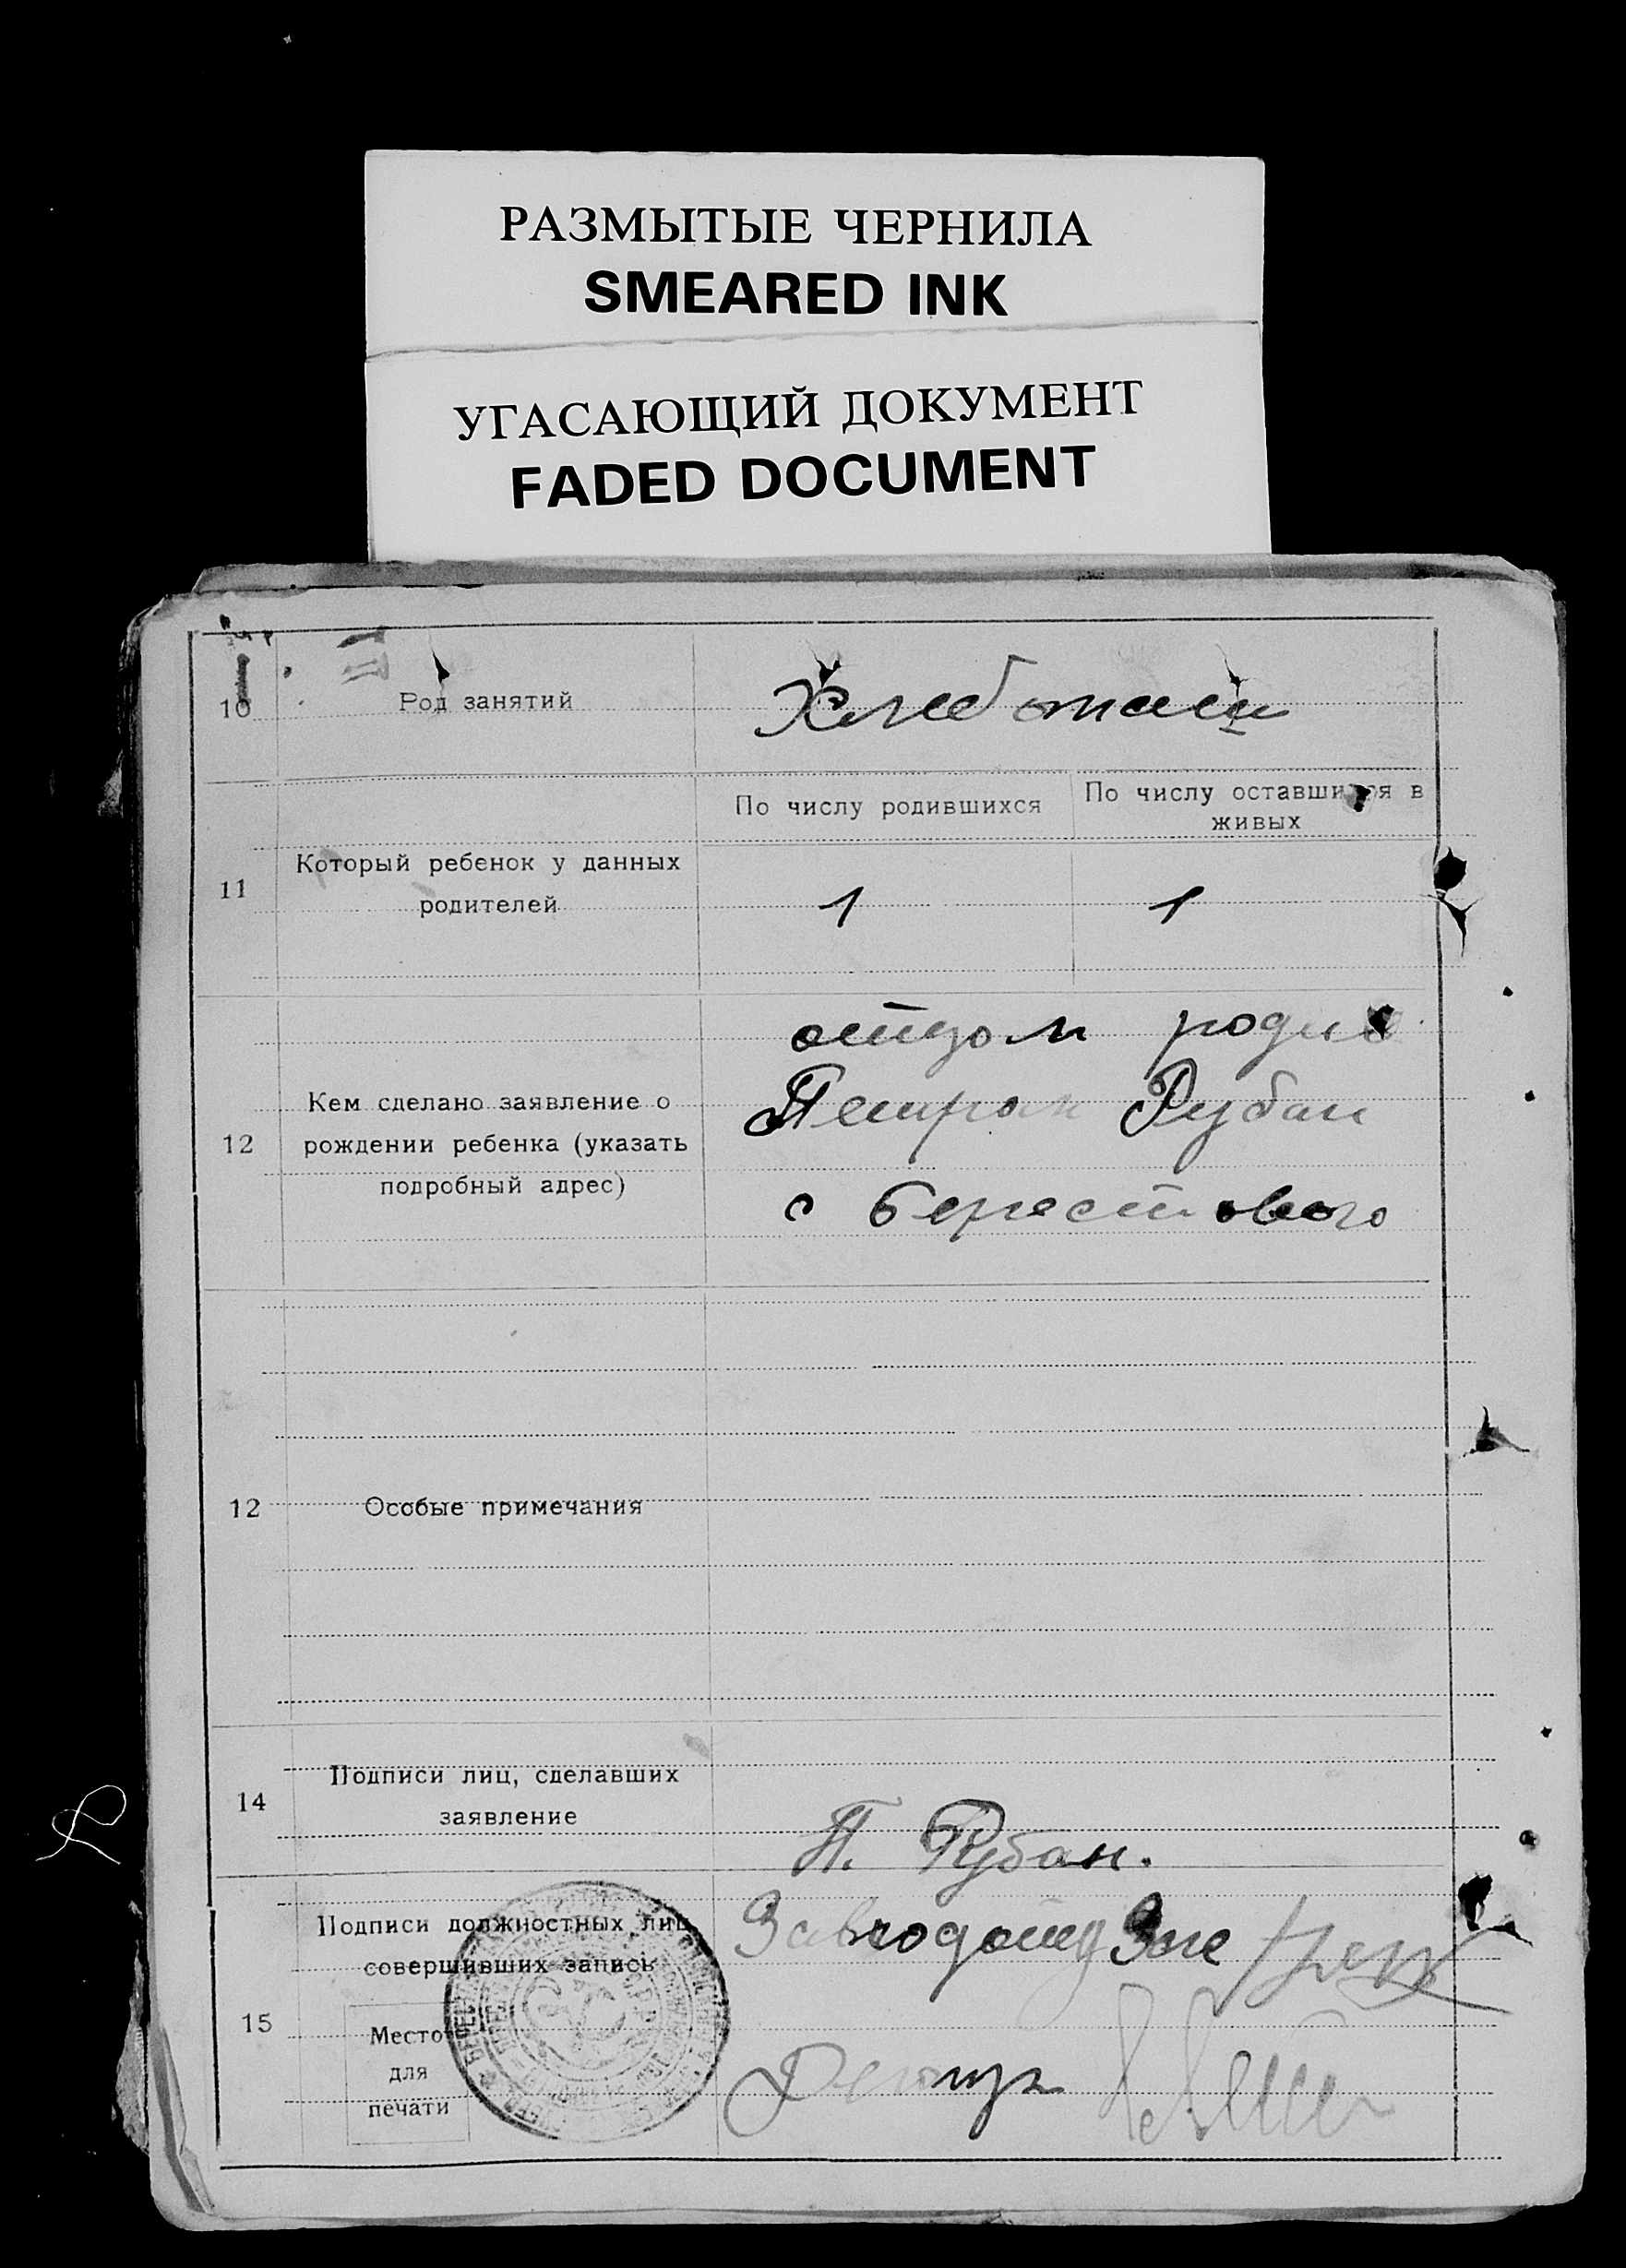 РАЗМЫТЫЕ ЧЕРНИЛА
SMEARED INK
УГАСАЮЩИЙ ДОКУМЕНТ
FADED DOCUMENT
10 Род занятий Хлебопашец
По числу родившихся По числу оставшихся в живых
11 Который ребенок у данных
родителей 1 1
отцом родн
12 Кем сделано заявление о
рождении ребенка (указать
подробный адрес)
Петром Рубан
с Берестового
12 Особые примечания
14 Подписи лиц, сделавших
заявление
П. Рубан.
15 Подписи должностных лиц,
совершивших запись
Место
для
печати